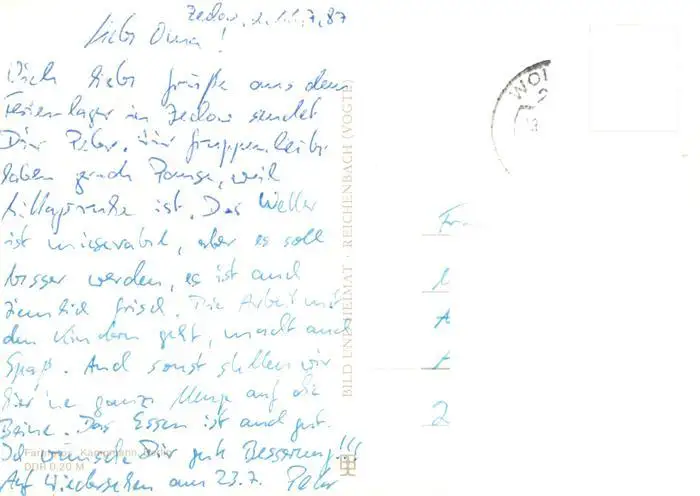 Zedow, d. 11.7.87
Liebe Oma!
Viele liebe Grüße aus dem
Ferienlager in Zedow sendet
Dir Peter. Wir Gruppenleiter
haben grad Pause, weil
Mittagsruhe ist. Das Wetter
ist miserabel, aber es soll
besser werden, es ist auch
ziemlich frisch. Die Arbeit mit
den Kindern geht, macht auch
Spaß. Und sonst stellen wir
hier 'ne ganze Menge auf die
Beine. Das Essen ist auch gut.
Ich wünsche Dir gute Besserung!!!
Auf Wiedersehen am 23.7. Peter
DDR 0,20 M
BILD UND HEIMAT · REICHENBACH (VOGTL)
WOL